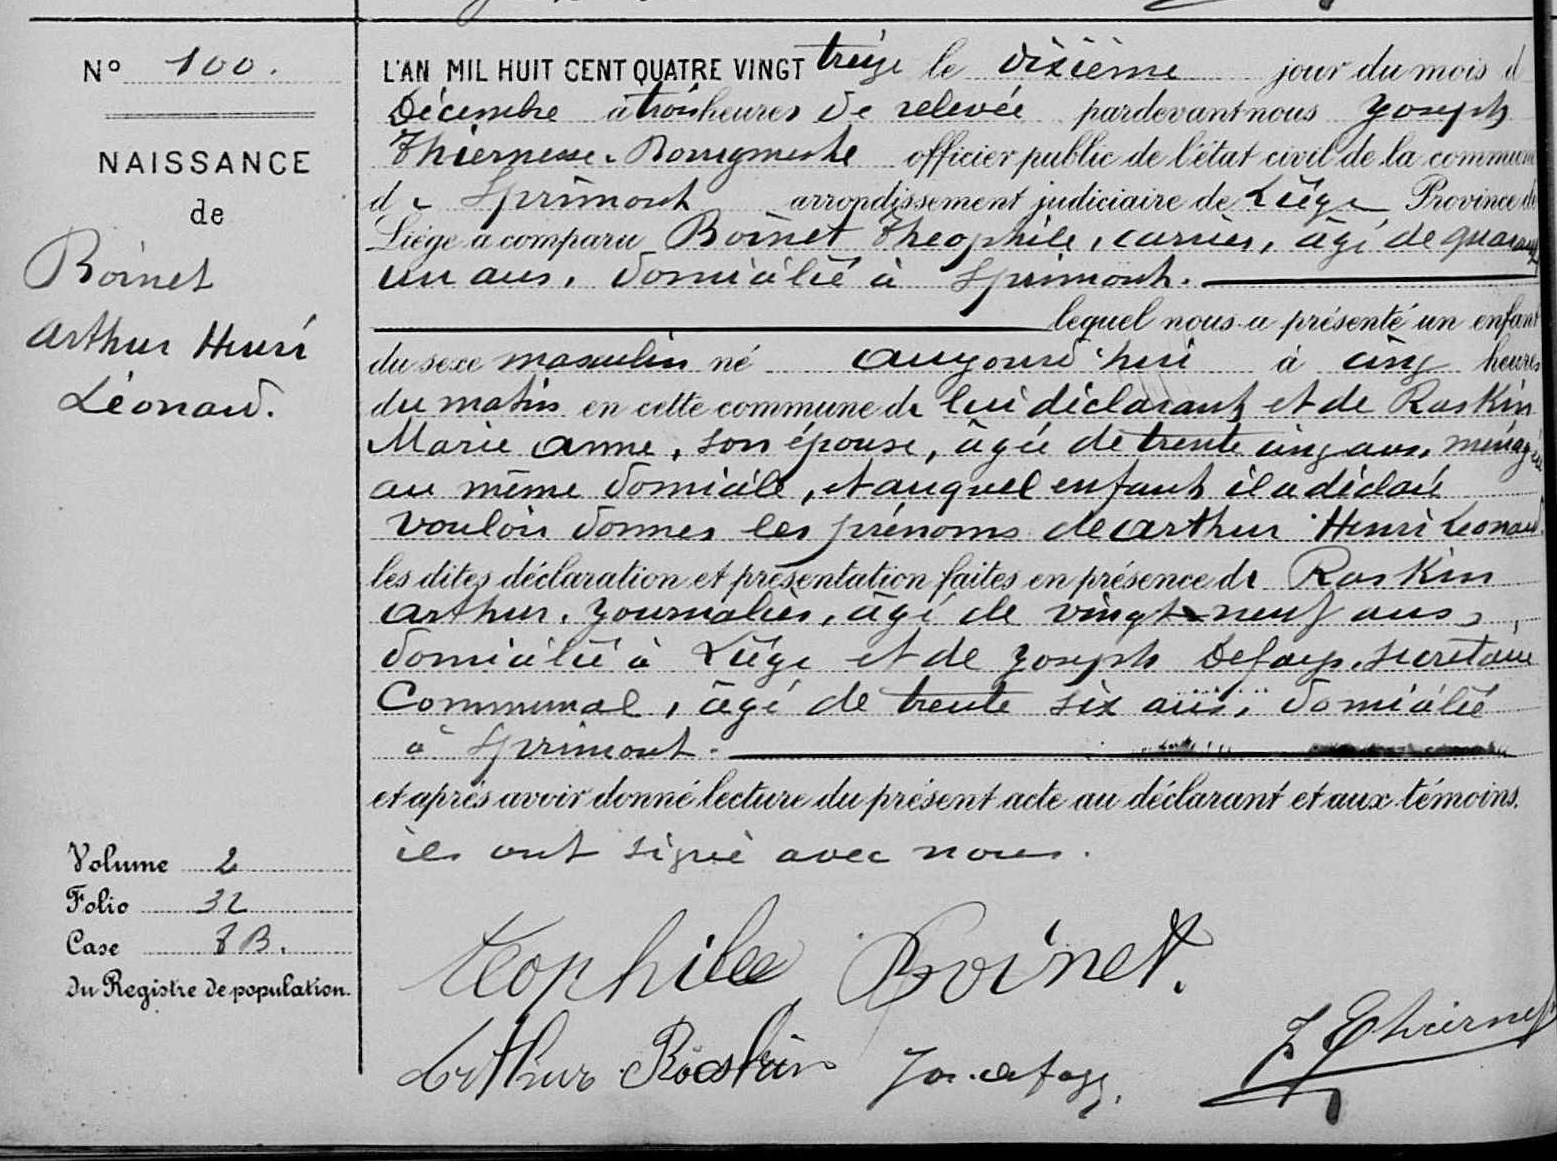 N° 100.
NAISSANCE
de
Boinet
Arthur Henri
Léonard.
L'AN MIL HUIT CENT QUATRE VINGT treize le dixième jour du mois d
Décembre à trois heures de relevée pardevant nous Joseph
Thiernesse, Bourgmestre officier public de l'état civil de la commune
de Sprimont arrondissement judiciaire de Liége Province de
Liége a comparu Boinet Théophile, carrier, âgé de quarante
un ans, domicilié à Sprimont.
lequel nous a présenté un enfant
du sexe masculin né aujourd'hui à cinq heures
du matin en cette commune de lui déclarant et de Raskin
Marie Anne, son épouse, âgée de trente cinq ans, ménagère
au même domicile, et auquel enfant il a déclaré
vouloir donner les prénoms de Arthur Henri Léonard.
les dites déclaration et présentation faites en présence de Raskin
Arthur, journalier, âgé de vingt-neuf ans,
domicilié à Liége et de Joseph Defays, secrétaire
Communal, âgé de trente six ans, domicilié
à Sprimont.
et après avoir donné lecture du présent acte au déclarant et aux témoins.
ils ont signé avec nous.
Volume 2
Folio 32
Case 8 B.
du Registre de population.
téophile Boinet.
Arthur Raskin Jos. defays. J Thierness